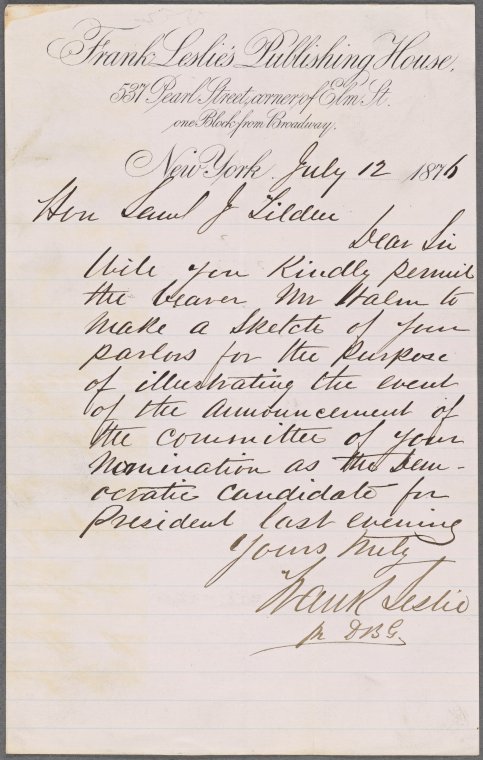 Frank Leslie's Publishing House.
537 Pearl Street, corner of Elm St.
one Block from Broadway.
New York. July 12 1876
Hon Saml J Tilden
Dear Sir
Will you Kindly permit
the bearer Mr Halm to
make a sketch of your
parlors for the purpose
of illustrating the event
of the announcement of
the committee of your
nomination as the Dem-
ocratic candidate for
President last evening
Yours truly
Frank Leslie
pr DBG